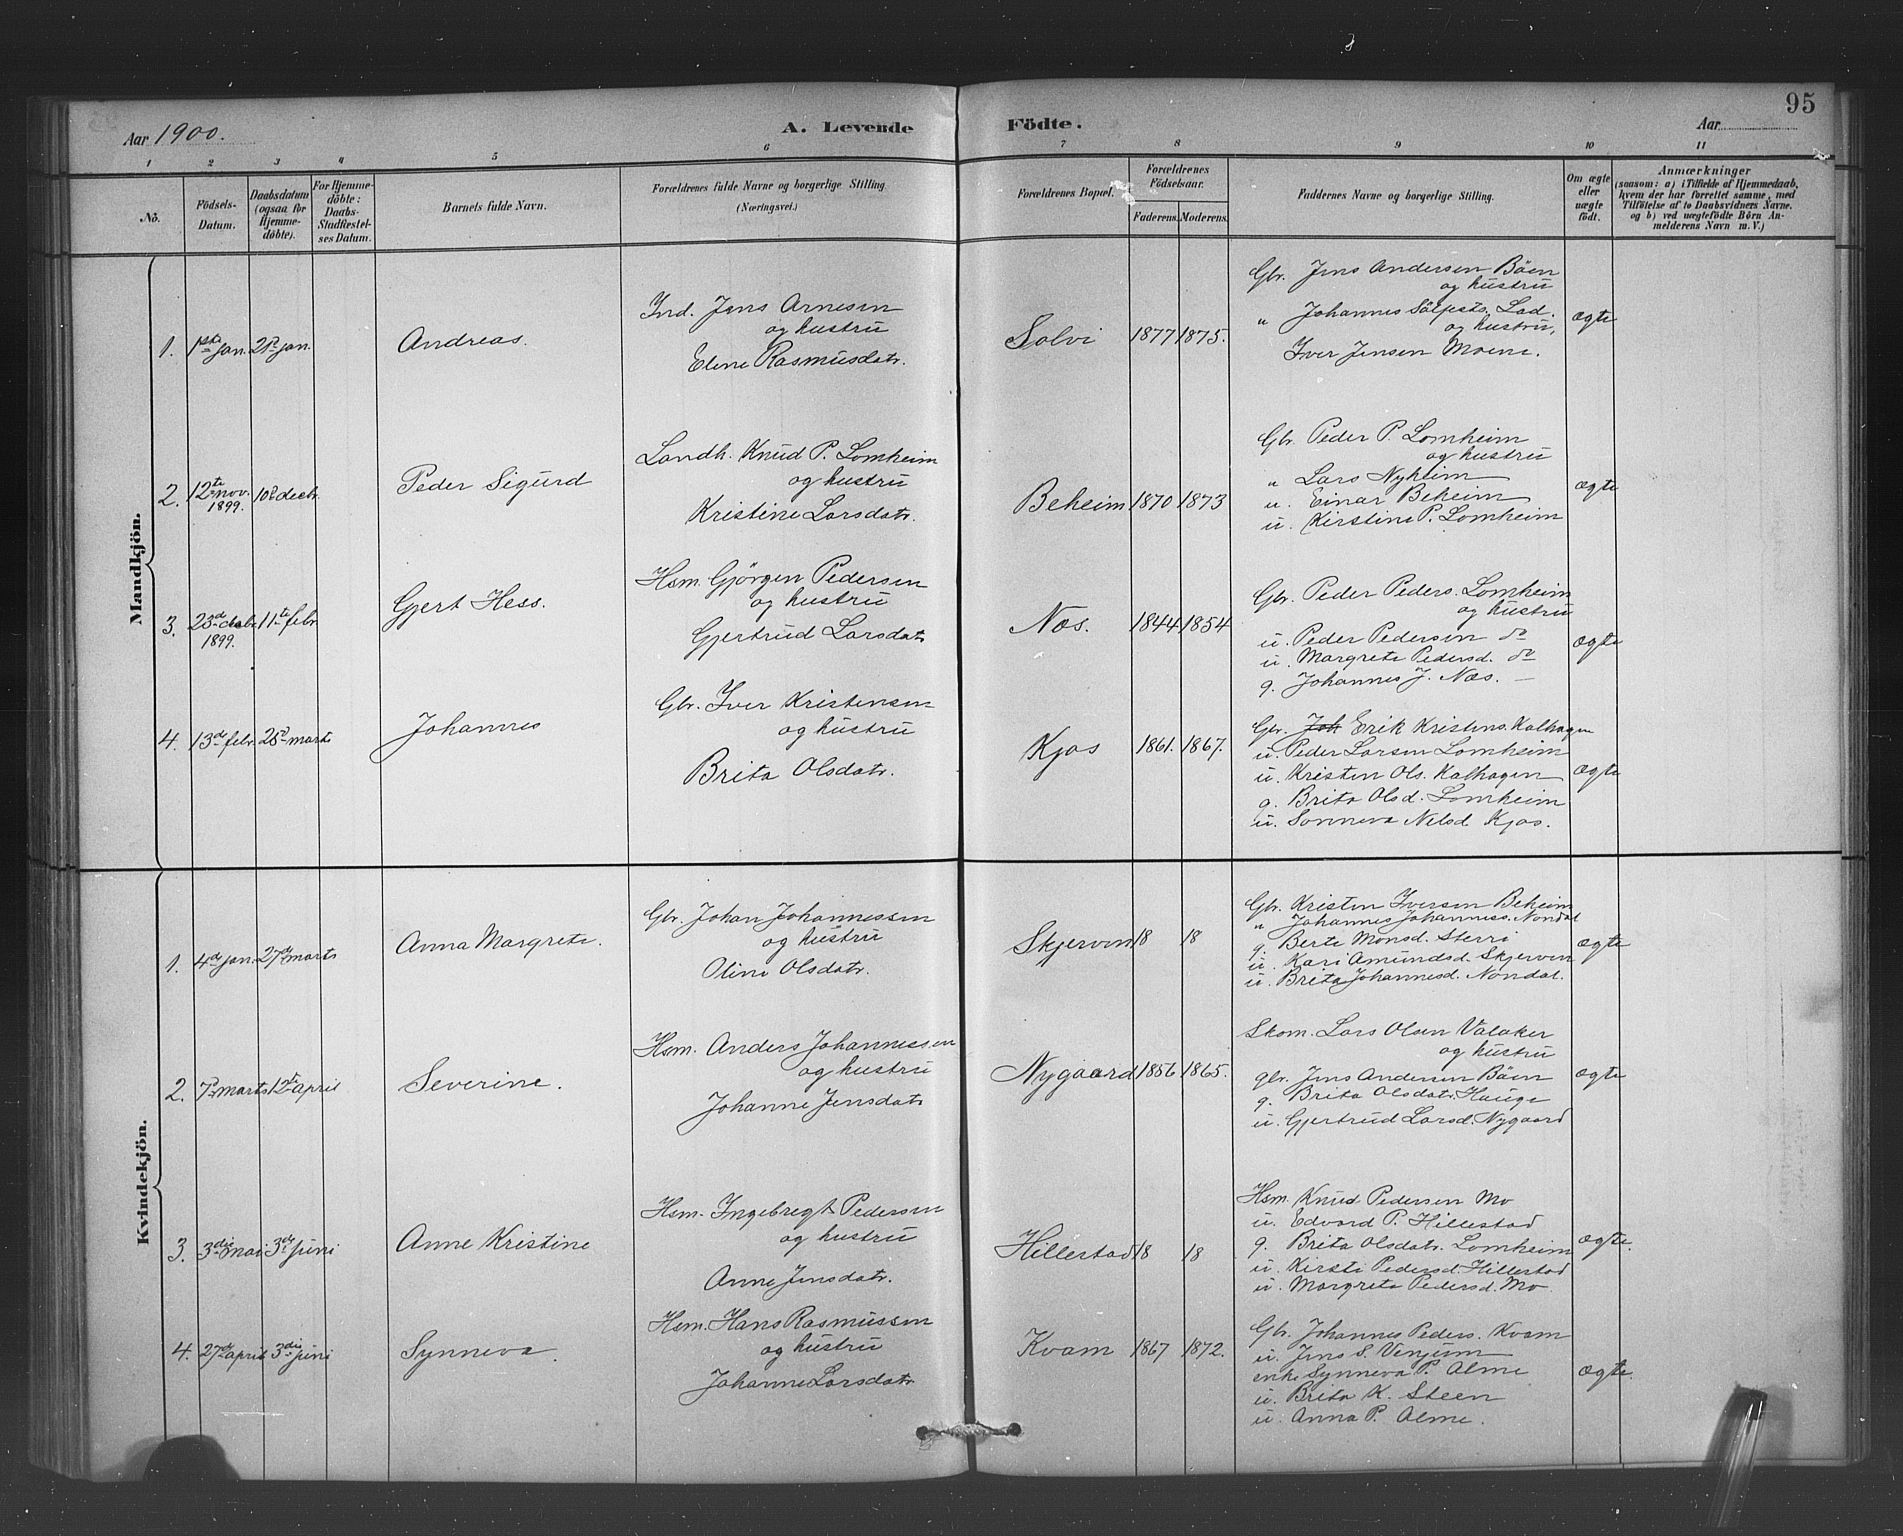 95
Aar 1900.
A. Levende Födte.
Aar
1 2 3 4 5 6 7 8 9 10 11
No.
Födsels-Datum.
Daabsdatum (ogsaa for Hjemme-döbte).
For Hjemme-döbte: Daabs-Stadfæstel-ses Datum.
Barnets fulde Navn.
Forældrenes fulde Navne og borgerlige Stilling (Næringsvei.)
Forældrenes Bopæl.
Forældrenes Födselsaar.
Faderens. Moderens.
Faddernes Navne og borgerlige Stilling.
Om ægte eller uægte födt.
Anmærkninger
(saasom: a) i Tilfælde af Hjemmedaab,
hvem der har forrettet samme, med
Tilföielse af to Daabsvidners Navne.
og b) ved uægtefödte Börn An-
melderens Navn m. V.)
Mandkjön.
1. 1ste jan. 21de jan. Andreas.
Ind. Jens Arnesen
og hustru
Eline Rasmusdatr.
Solvi 1877 1875.
Gbr. Jens Andersen Böen
og hustru
" Johannes Sölfests. Lad.
og hustru,
Iver Jensen Moene.
ægte
2. 12te nov. 1899. 10de decbr. Peder Sigurd
Landh. Knud P. Lomheim
og hustru
Kristine Larsdatr.
Beheim 1870 1873
Gbr. Peder P. Lomheim
og hustru
" Lars Nyheim
u. Einar Beheim
u. Kirstine P. Lomheim
ægte
3. 23de decbr. 1899. 11te febr. Gjert Hess.
Hsm. Gjörgen Pedersen
og hustru
Gjertrud Larsdatr
Næs. 1844 1854
Gbr. Peder Peders. Lomheim
og hustru
u. Peder Pedersen do
u. Margrete Pedersd. do
g. Johannes J. Næs. —
ægte
4. 13de febr. 25de marts Johannes
Gbr. Iver Kristensen
og hustru
Brita Olsdatr.
Kjos 1861. 1867.
Gbr. Joh Erik Kristens. Kalhagen
u. Peder Larsen Lomheim
u. Kristen Ols. Kalhagen
g. Brita Olsd. Lomheim
u. Sonneva Nelsd Kjos.
ægte
Kvindekjön.
1. 4de jan. 27de marts Anna Margrete.
Gbr. Johan Johannessen
og hustru
Oline Olsdatr.
Skjerven 18 18
Gbr. Kristen Iversen Beheim
" Johannes Johanness. Nondal
g. Berte Monsd. Sterri
u. Kari Amundsd. Skjerven
u. Brita Johannesd. Nondal.
ægte
2. 7de marts 12te april Severine.
Hsm. Anders Johannessen
og hustru
Johanne Jensdatr
Nygaard 1856 1865.
Skom. Lars Olsen Valaker
og hustru
gbr. Jens Andersen Böen
g. Brita Olsdatr. Hauge
u. Gjertrud Larsd. Nygaard
ægte
3. 3die mai 3die juni Anne Kristine
Hsm. Ingebregt Pedersen
og hustru
Anne Jensdatr.
Hillestad 18 18
Hsm. Knud Pedersen Mo
u. Edvard P. Hillestad
g. Brita Olsdatr. Lomheim
u. Kirsti Pedersd. Hillestad
u. Margreta Pedersd. Mo
ægte.
4. 27de april 3die juni Synneva.
Hsm. Hans Rasmussen
og hustru
Johanne Larsdatr
Kvam 1867 1872.
Gbr. Johannes Peders. Kvam
u. Jens S. Venjum
enke Synneva P. Alme
u. Brita K. Steen
u. Anna P. Alme.
ægte.